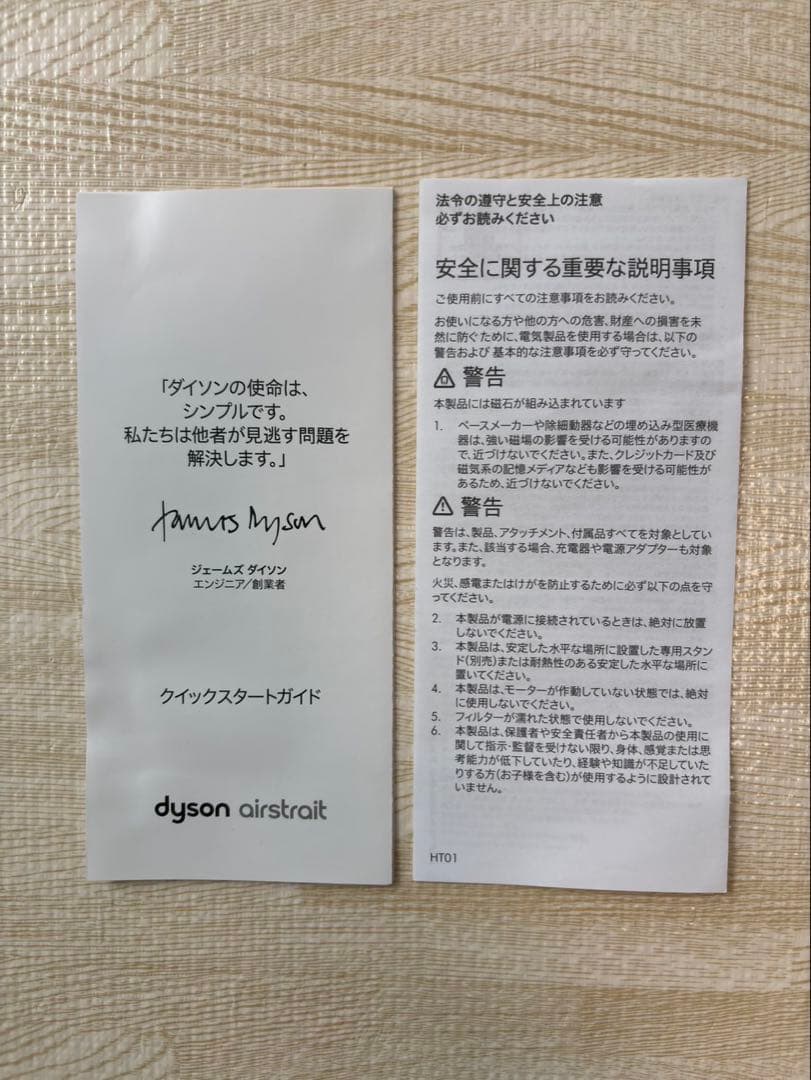 「ダイソンの使命は、
シンプルです。
私たちは他者が見逃す問題を
解決します。」
James Dyson
ジェームズ ダイソン
エンジニア/創業者
クイックスタートガイド
dyson airstrait
法令の遵守と安全上の注意
必ずお読みください
安全に関する重要な説明事項
ご使用前にすべての注意事項をお読みください。
お使いになる方や他の方への危害、財産への損害を未
然に防ぐために、電気製品を使用する場合は、以下の
警告および 基本的な注意事項を必ず守ってください。
警告
本製品には磁石が組み込まれています
1. ペースメーカーや除細動器などの埋め込み型医療機
器は、強い磁場の影響を受ける可能性がありますの
で、近づけないでください。また、クレジットカード及び
磁気系の記憶メディアなども影響を受ける可能性が
あるため、近づけないでください。
警告
警告は、製品、アタッチメント、付属品すべてを対象としてい
ます。また、該当する場合、充電器や電源アダプターも対象
となります。
火災、感電またはけがを防止するために必ず以下の点を守
ってください。
2. 本製品が電源に接続されているときは、絶対に放置
しないでください。
3. 本製品は、安定した水平な場所に設置した専用スタン
ド(別売)または耐熱性のある安定した水平な場所に
置いてください。
4. 本製品は、モーターが作動していない状態では、絶対
に使用しないでください。
5. フィルターが濡れた状態で使用しないでください。
6. 本製品は、保護者や安全責任者から本製品の使用に
関して指示・監督を受けない限り、身体、感覚または思
考能力が低下していたり、経験や知識が不足していた
りする方(お子様を含む)が使用するように設計されて
いません。
HT01